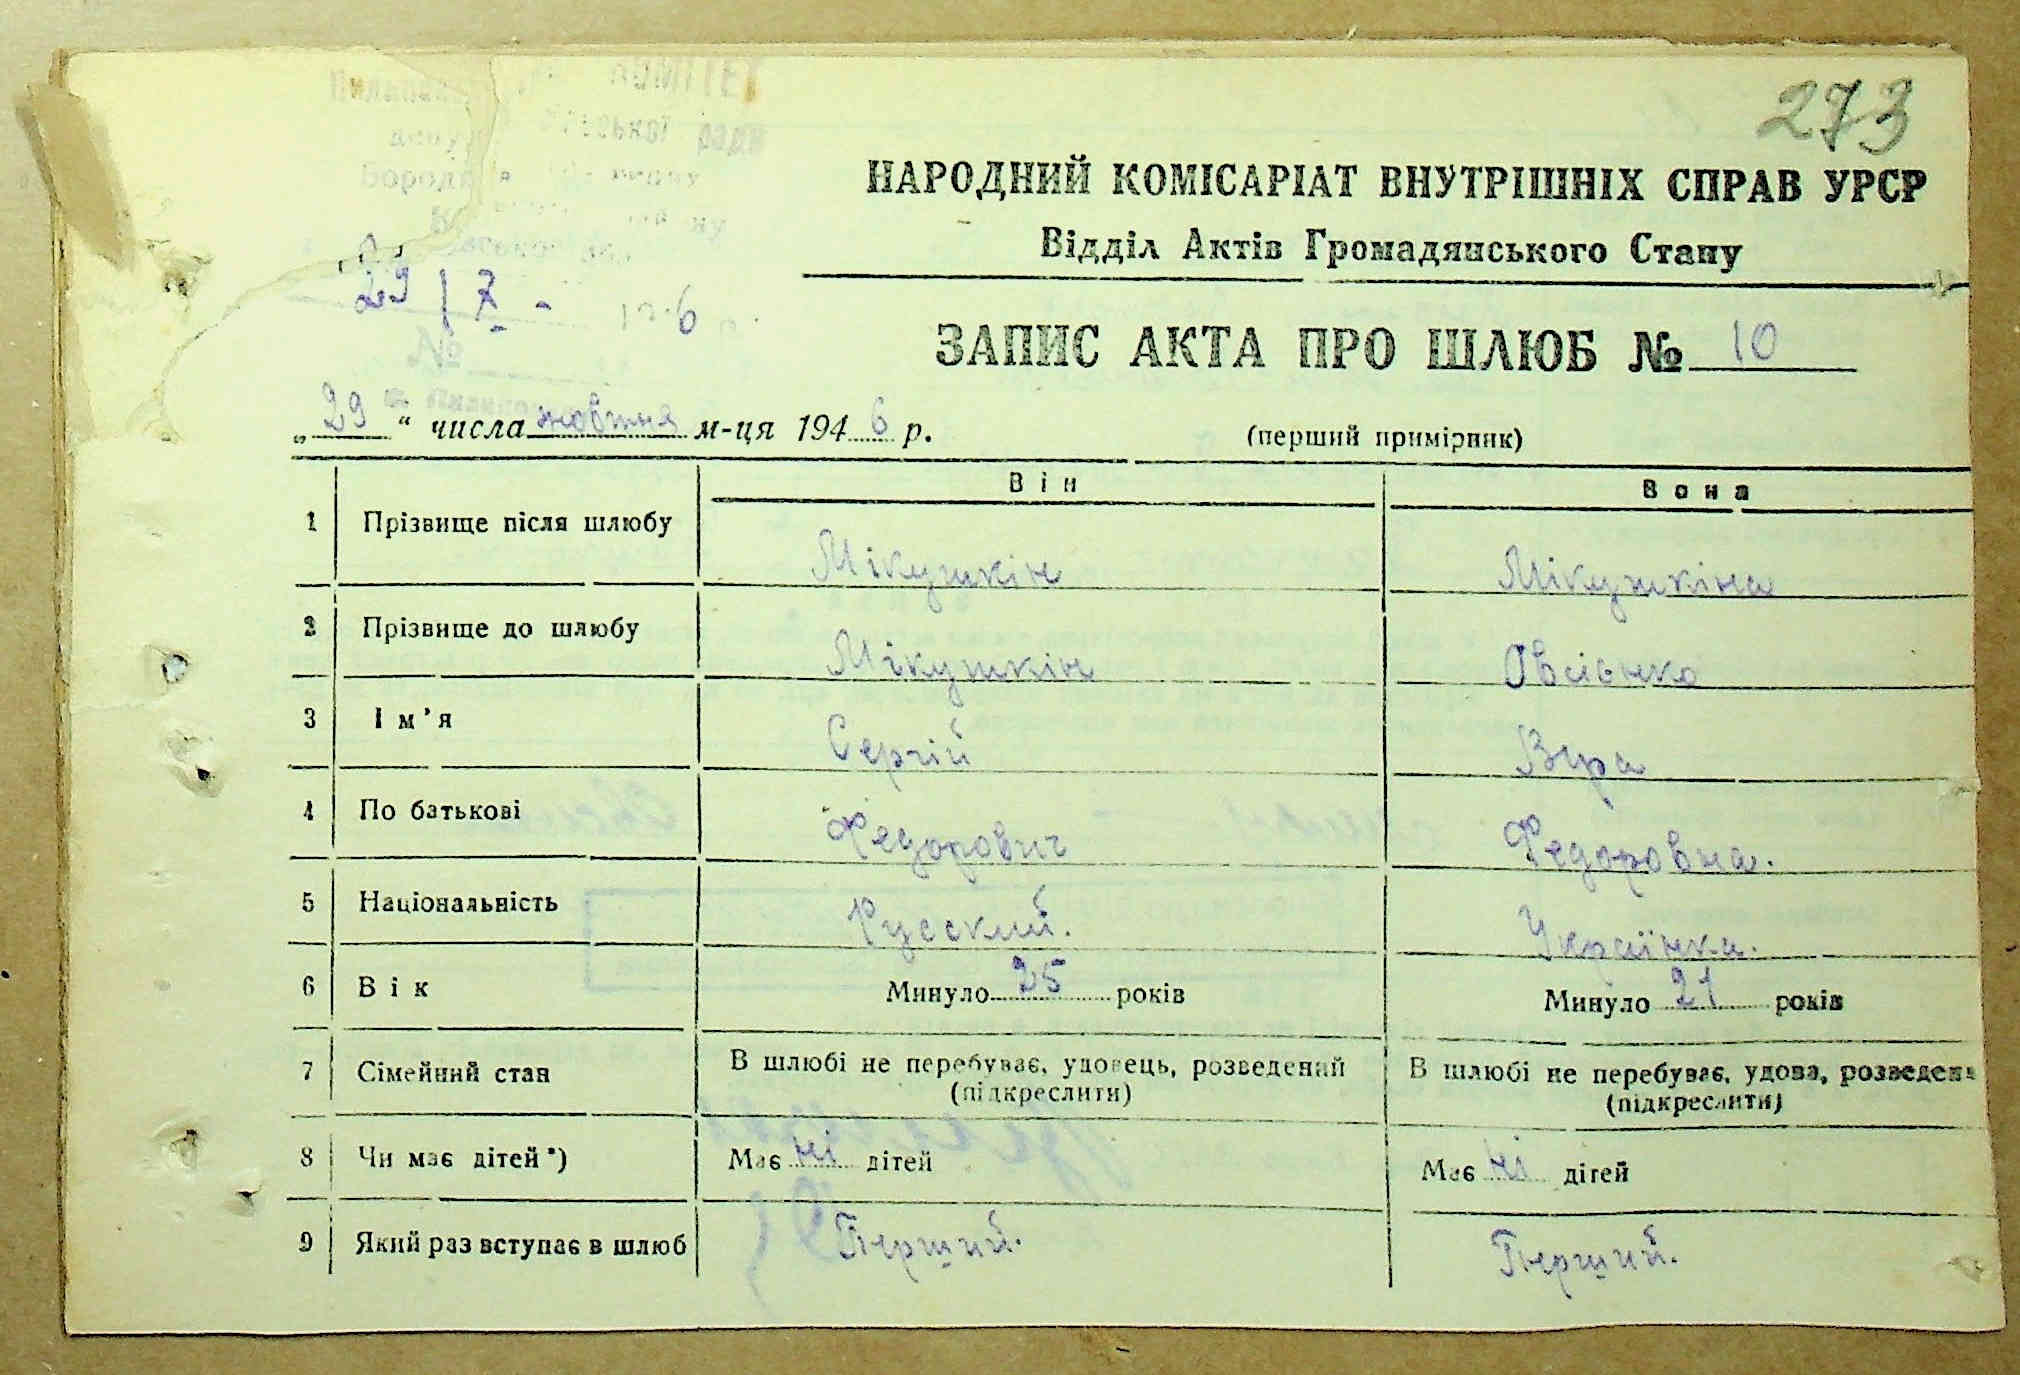 273
КОМІТЕТ
ської ради
НАРОДНИЙ КОМІСАРІАТ ВНУТРІШНІХ СПРАВ УРСР
Відділ Актів Громадянського Стану
29 / X - 6
№
ЗАПИС АКТА ПРО ШЛЮБ № 10
„ 29 “ числа жовтня м-ця 194 6 р. (перший примірник)
Він Вона
1 Прізвище після шлюбу Мікушкін Мікушкіна
2 Прізвище до шлюбу Мікушкін Овсієнко
3 Ім’я Сергій Віра
4 По батькові Федорович Федоровна.
5 Національність Русский. Українка.
6 Вік Минуло 25 років Минуло 21 років
7 Сімейний стан В шлюбі не перебуває, удовець, розведений (підкреслити) В шлюбі не перебуває, удова, розведена (підкреслити)
8 Чи має дітей*) Має ні дітей Має ні дітей
9 Який раз вступає в шлюб Перший. Перший.